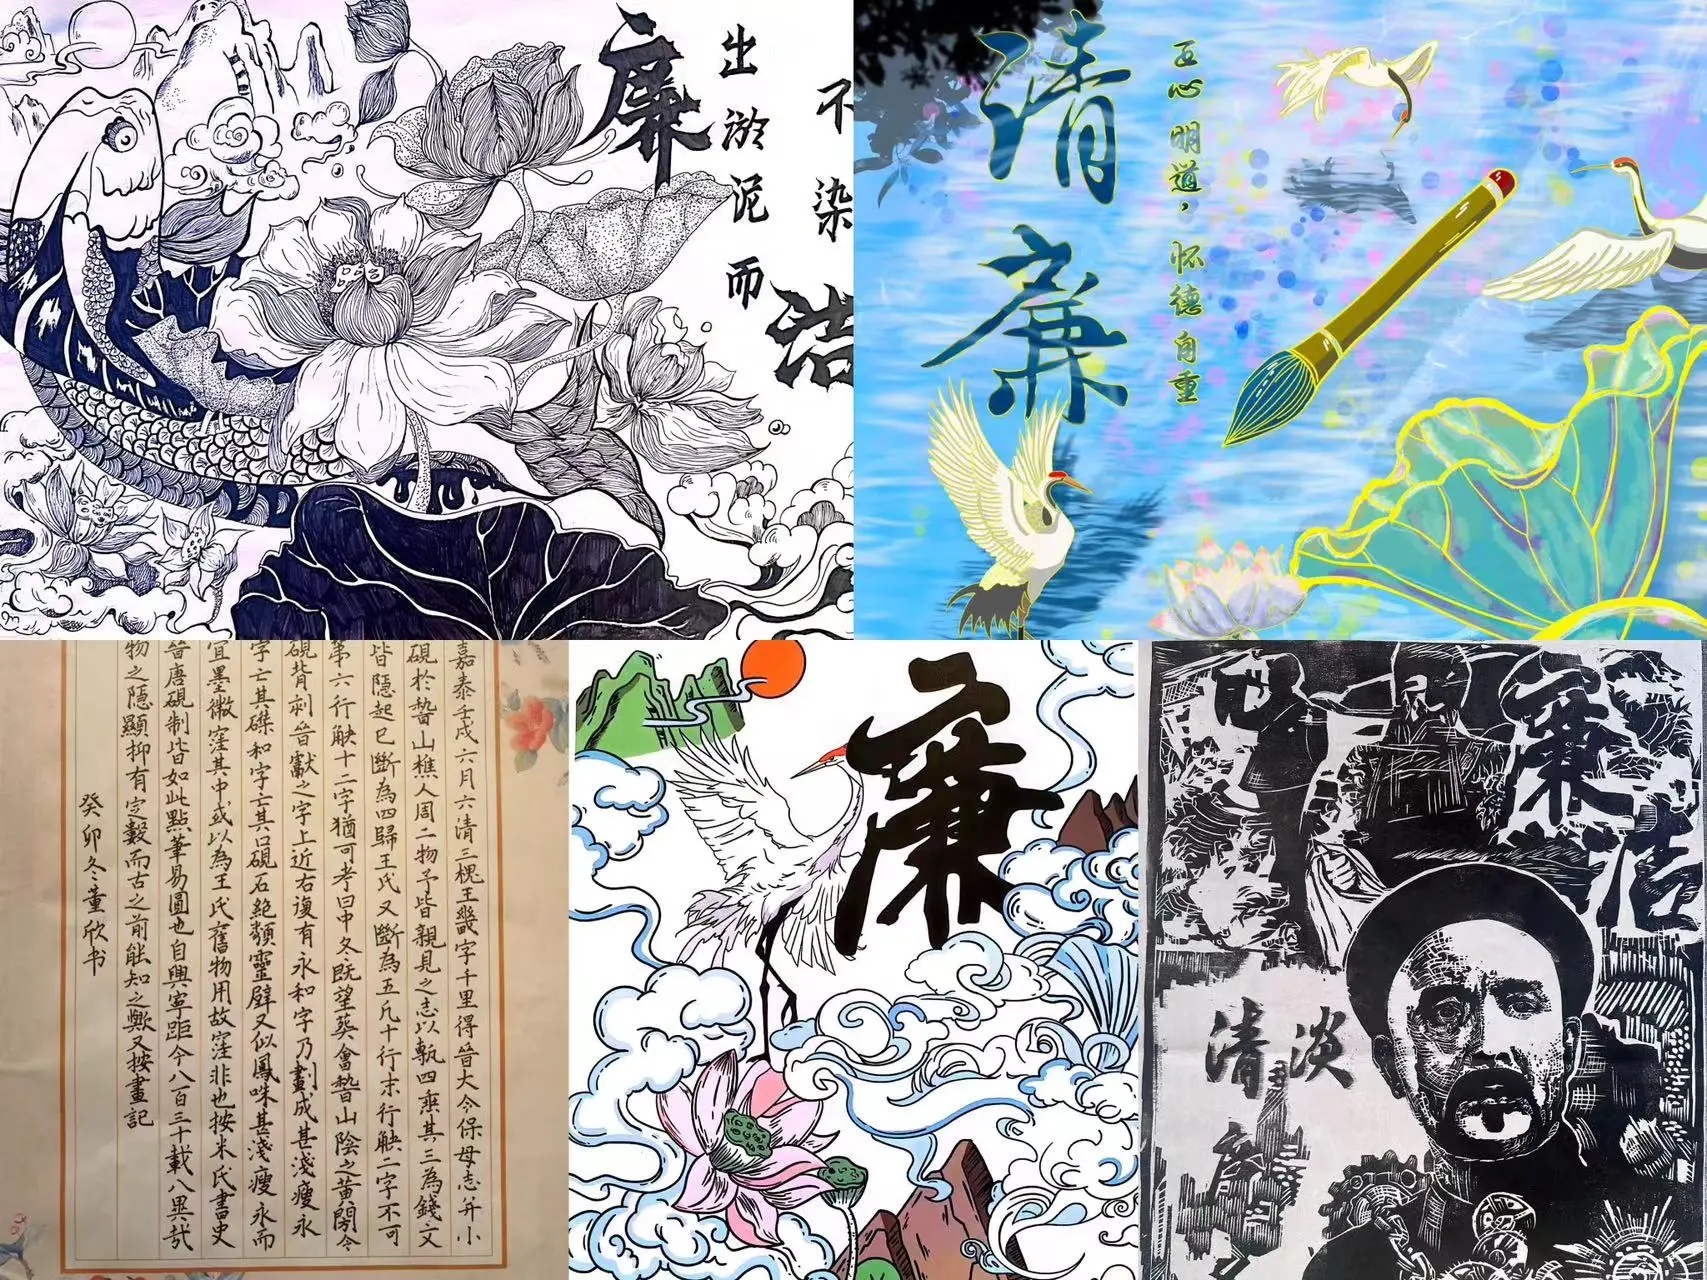 廉
出淤泥而
不染
洁
清廉
正心明道，怀德自重
嘉泰壬戌六月六清三槐王畿字千里得晉大令保母志并小
硯於嵆山樵人周二物予皆親見之志以甎四乘其三為錢文
皆隱起已斷為四歸王氏又斷為五凡十行末行缺二字不可
第六行缺十二字猶可考曰中冬既望葬會嵆山陰之黃閍今
硯背刻晉獻之字上近右復有永和字乃劃成甚淺瘦永
字亡其磔和字亡其口硯石絶類靈壁又似鳳咮甚淺瘦永而
宜墨微窪其中或以為王氏舊物用故窪非也按米氏書史
晉唐硯制皆如此點筆易圓也自興寧距今八百三十載八異哉
物之隱顯抑有定數而古之前能知之歟又按畫記
癸卯冬董欣书
廉
廉洁
淡
清廉